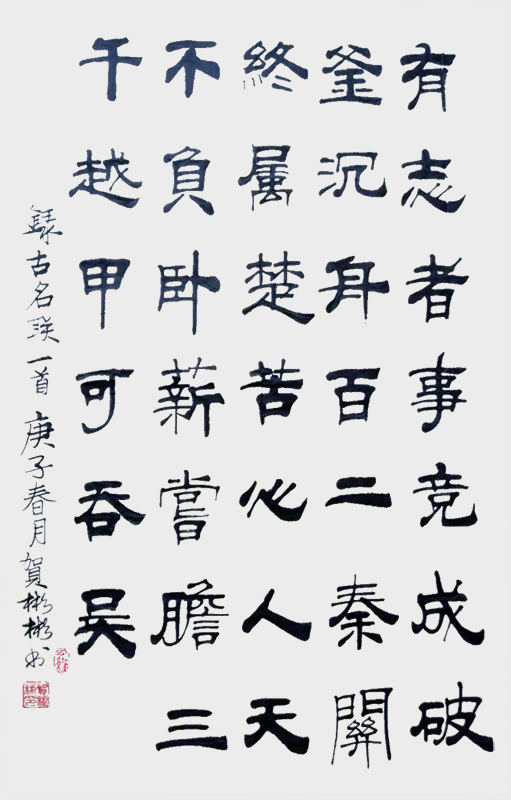 有志者事竞成破
釜沉舟百二秦關
終属楚苦心人天
不負卧薪嘗膽三
千越甲可吞吴
録古名联一首庚子春月賀彬彬书